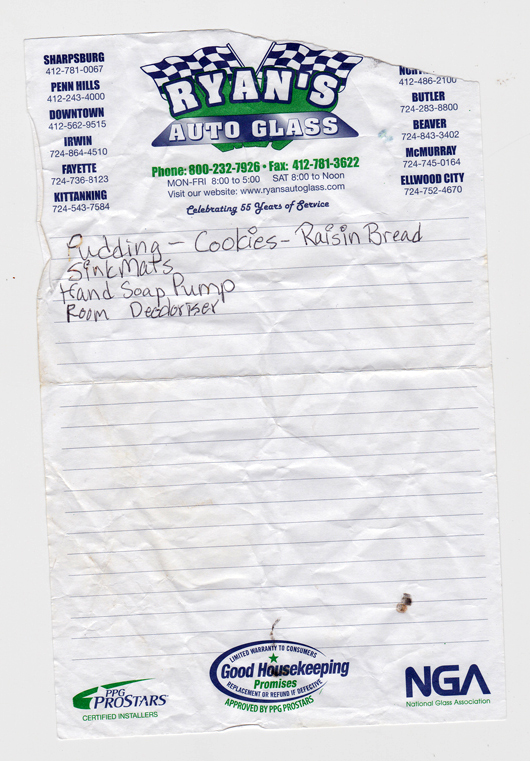 SHARPSBURG
412-781-0067
PENN HILLS
412-243-4000
DOWNTOWN
412-562-9515
IRWIN
724-864-4510
FAYETTE
724-736-8123
KITTANNING
724-543-7584
RYAN'S
AUTO GLASS
Phone: 800-232-7926 • Fax: 412-781-3622
MON-FRI 8:00 to 5:00 SAT 8:00 to Noon
Visit our website: www.ryansautoglass.com
Celebrating 55 Years of Service
412-486-2100
BUTLER
724-283-8800
BEAVER
724-843-3402
McMURRAY
724-745-0164
ELLWOOD CITY
724-752-4670
Pudding - Cookies - Raisin Bread
Sink Mats
Hand Soap Pump
Room Deodoriser
PPG
PROSTARS
CERTIFIED INSTALLERS
LIMITED WARRANTY TO CONSUMERS
Good Housekeeping
Promises
REPLACEMENT OR REFUND IF DEFECTIVE
APPROVED BY PPG PROSTARS
NGA
National Glass Association